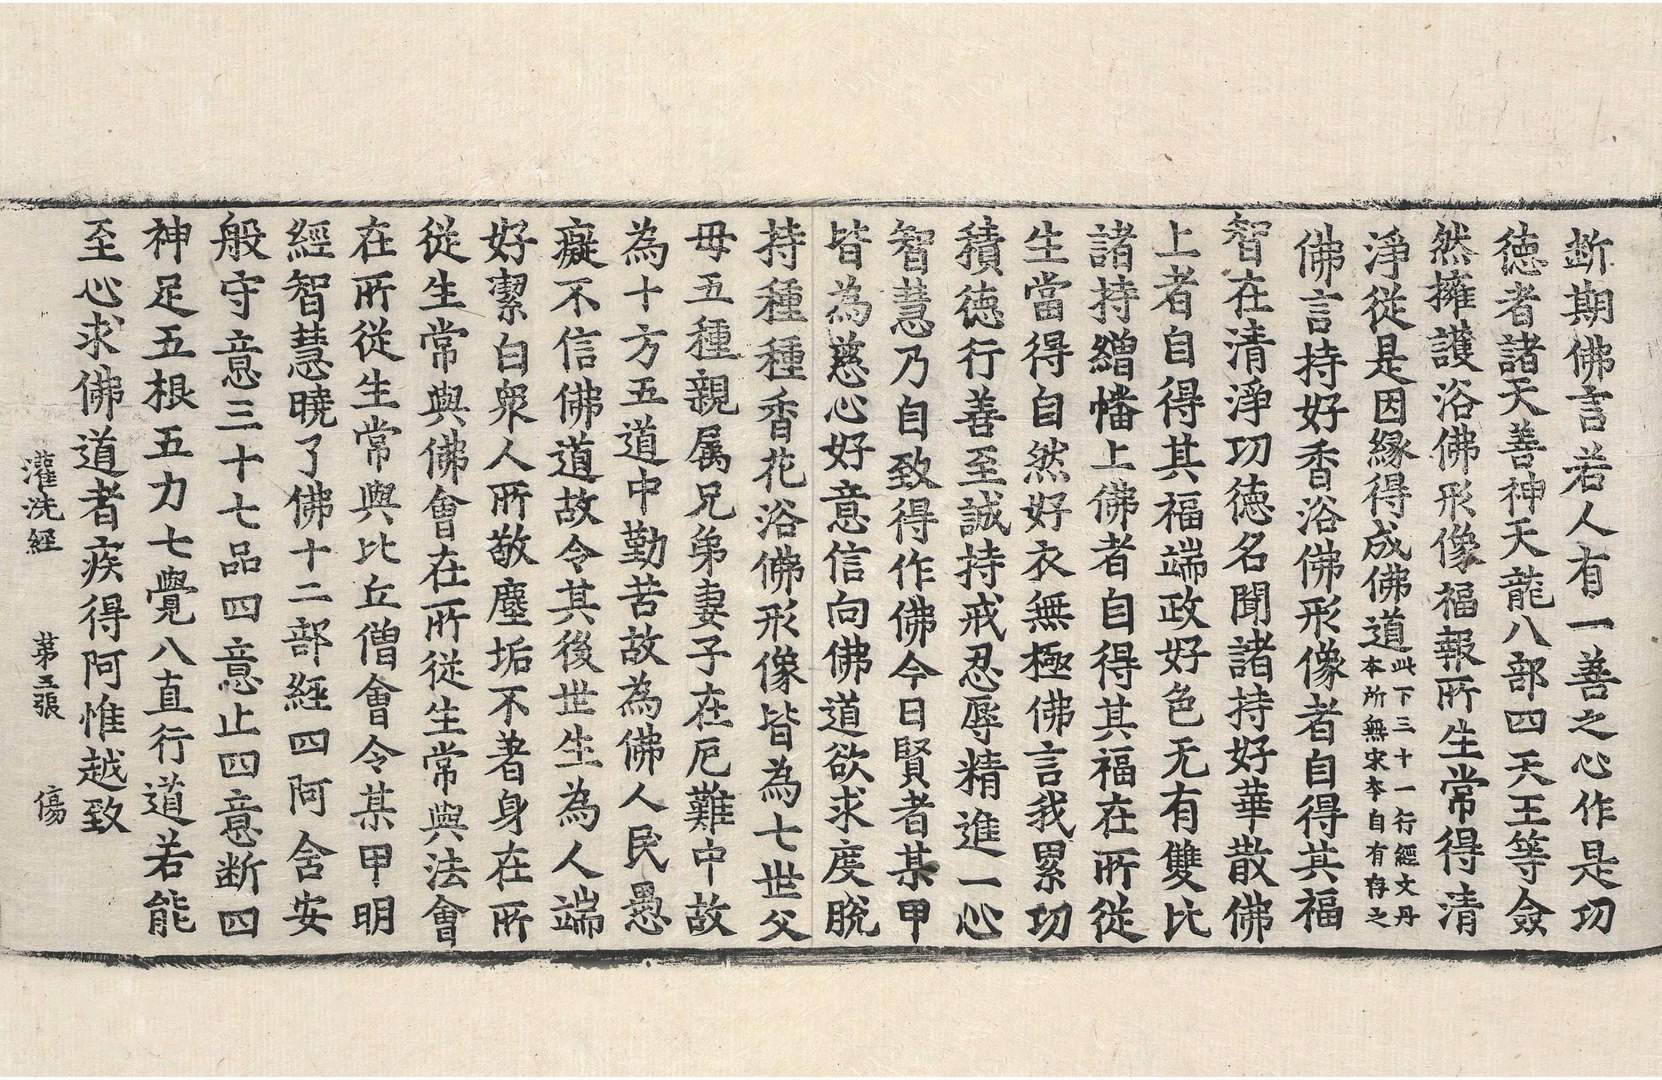 断期佛言若人有一善之心作是功
徳者諸天善神天龍八部四天王等僉
然擁護浴佛形像福報所生常得清
淨從是因緣得成佛道此下三十一行經文丹本所無宋本自有存之
佛言持好香浴佛形像者自得其福
智在清淨功徳名聞諸持好華散佛
上者自得其福端政好色无有雙比
諸持繒幡上佛者自得其福在所從
生當得自然好衣無極佛言我累功
積徳行善至誠持戒忍辱精進一心
智慧乃自致得作佛今日賢者某甲
皆為慈心好意信向佛道欲求度脫
持種種香花浴佛形像皆為七世父
母五種親属兄弟妻子在厄難中故
為十方五道中勤苦故為佛人民愚
癡不信佛道故令其後世生為人端
好潔白衆人所敬塵垢不著身在所
從生常與佛會在所從生常與法會
在所從生常與比丘僧會令某甲明
經智慧曉了佛十二部經四阿含安
般守意三十七品四意止四意断四
神足五根五力七覺八直行道若能
至心求佛道者疾得阿惟越致
灌洗經 第五張 傷